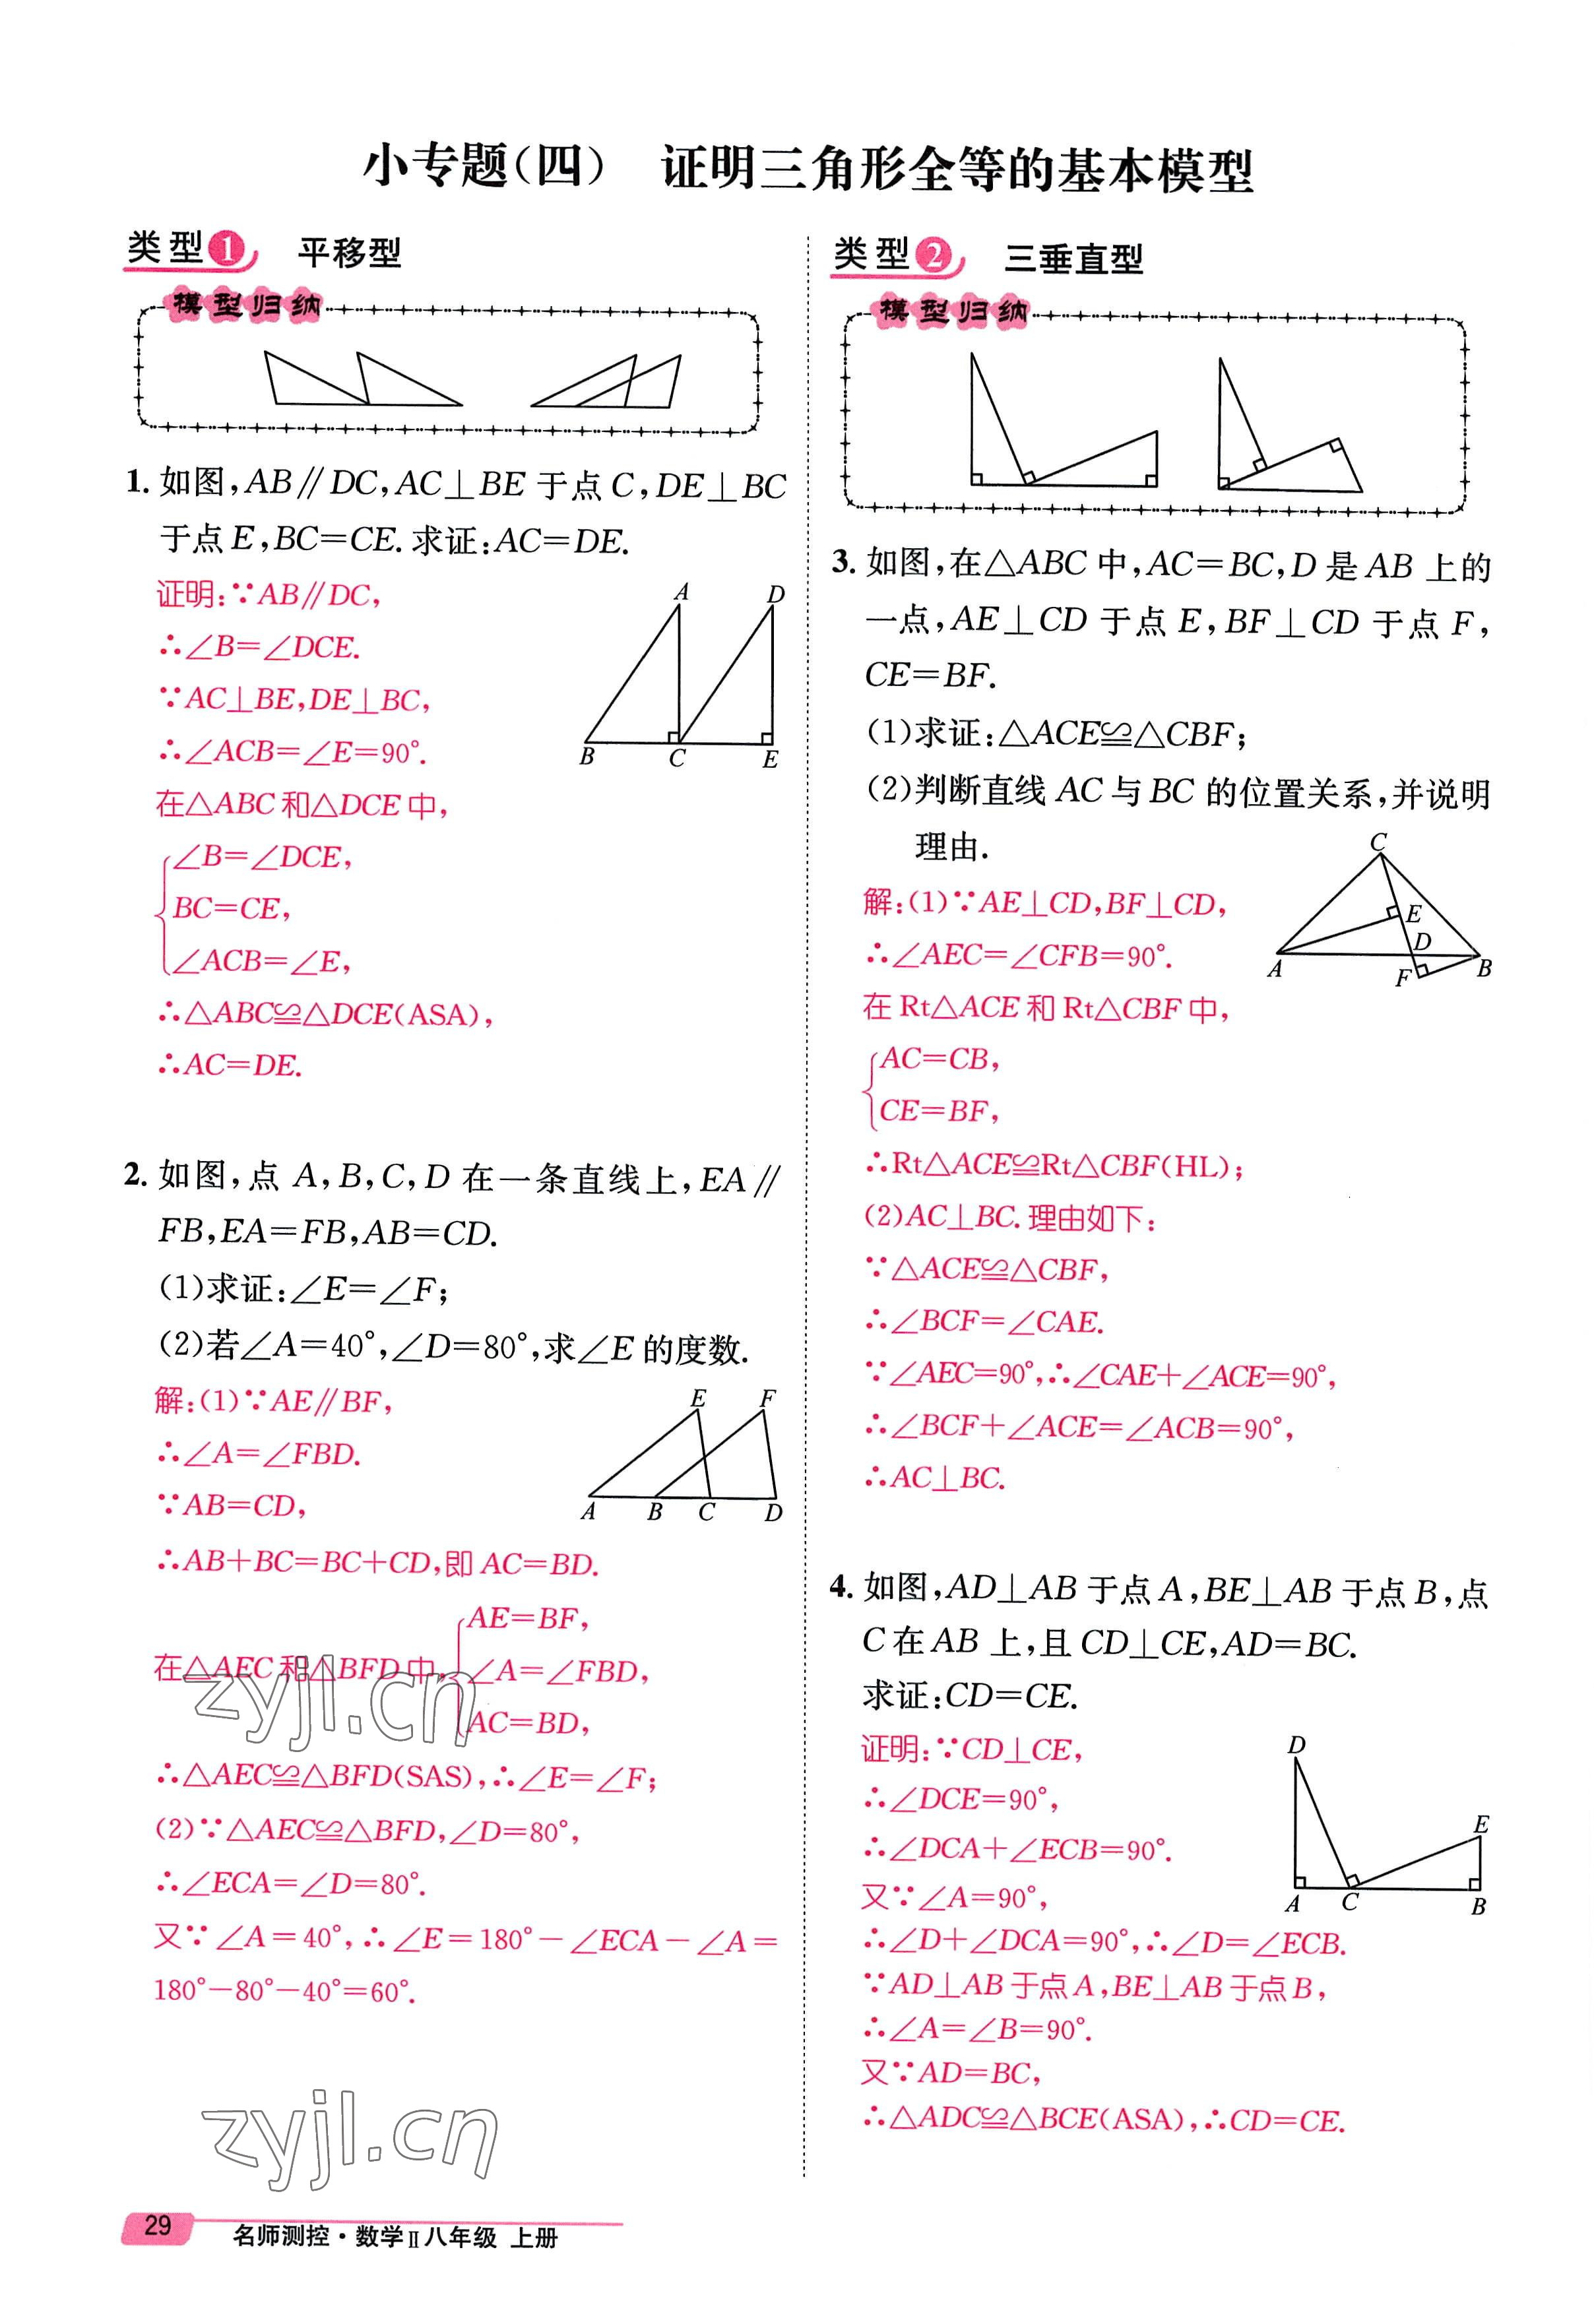 小专题(四) 证明三角形全等的基本模型
类型1 平移型
模型归纳
1. 如图,AB∥DC,AC⊥BE于点C,DE⊥BC
于点E,BC=CE.求证:AC=DE.
证明:∵AB∥DC,
∴∠B=∠DCE.
∵AC⊥BE,DE⊥BC,
∴∠ACB=∠E=90°.
在△ABC和△DCE中,
∠B=∠DCE,
BC=CE,
∠ACB=∠E,
∴△ABC≌△DCE(ASA),
∴AC=DE.
A D
B C E
2. 如图,点A,B,C,D在一条直线上,EA∥
FB,EA=FB,AB=CD.
(1)求证:∠E=∠F;
(2)若∠A=40°,∠D=80°,求∠E的度数.
解:(1)∵AE∥BF,
∴∠A=∠FBD.
∵AB=CD,
∴AB+BC=BC+CD,即AC=BD.
E F
A B C D
AE=BF,
在△AEC和△BFD中, ∠A=∠FBD,
AC=BD,
∴△AEC≌△BFD(SAS),∴∠E=∠F;
(2)∵△AEC≌△BFD,∠D=80°,
∴∠ECA=∠D=80°.
又∵∠A=40°,∴∠E=180°-∠ECA-∠A=
180°-80°-40°=60°.
zyjl.cn
zyjl.cn
类型2 三垂直型
模型归纳
3. 如图,在△ABC中,AC=BC,D是AB上的
一点,AE⊥CD于点E,BF⊥CD于点F,
CE=BF.
(1)求证:△ACE≌△CBF;
(2)判断直线AC与BC的位置关系,并说明
理由.
解:(1)∵AE⊥CD,BF⊥CD,
∴∠AEC=∠CFB=90°.
在Rt△ACE和Rt△CBF中,
AC=CB,
CE=BF,
∴Rt△ACE≌Rt△CBF(HL);
(2)AC⊥BC.理由如下:
∵△ACE≌△CBF,
∴∠BCF=∠CAE.
∵∠AEC=90°,∴∠CAE+∠ACE=90°,
∴∠BCF+∠ACE=∠ACB=90°,
∴AC⊥BC.
C
E
D
A F B
4. 如图,AD⊥AB于点A,BE⊥AB于点B,点
C在AB上,且CD⊥CE,AD=BC.
求证:CD=CE.
证明:∵CD⊥CE,
∴∠DCE=90°,
∴∠DCA+∠ECB=90°.
又∵∠A=90°,
∴∠D+∠DCA=90°,∴∠D=∠ECB.
∵AD⊥AB于点A,BE⊥AB于点B,
∴∠A=∠B=90°.
又∵AD=BC,
∴△ADC≌△BCE(ASA),∴CD=CE.
D
E
A C B
29 名师测控·数学Ⅱ八年级 上册